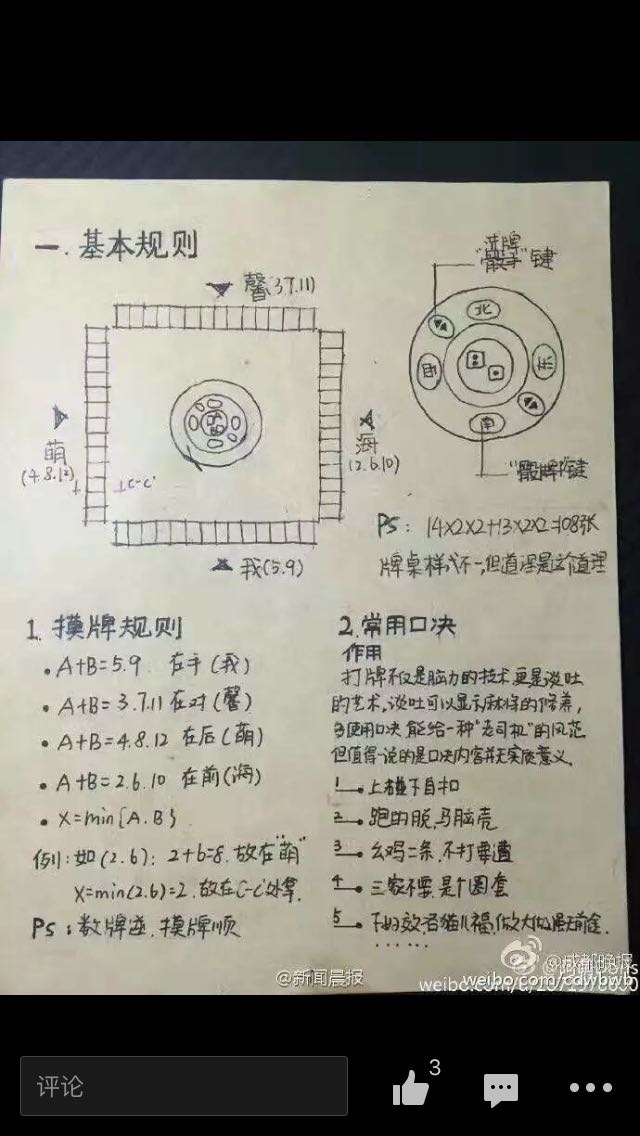 一.基本规则
馨(3.7.11)
萌
(4.8.12)
C-C'
海
(2.6.10)
我(5.9)
洗牌
"骰子"键
北
西
东
南
键
PS: 14×2×2+13×2×2=108张
牌桌样式不一,但道理是这个道理
1.摸牌规则
•A+B=5.9 在手(我)
•A+B=3.7.11 在对(馨)
•A+B=4.8.12 在后(萌)
•A+B=2.6.10 在前(海)
•X=min{A.B}
例:如(2.6): 2+6=8.放在"萌"
X=min(2.6)=2.放在C-C'处拿.
PS:数牌逆.摸牌顺
2.常用口决
作用
打牌不仅是脑力的技术,更是谈吐
的艺术,谈吐可以显示麻将的修养,
多使用口决能给一种"老司机"的风范
但值得一说的是口决内容并无实质意义。
1—•上碰下自扣
2—•跑的脱,马脑壳
3—•幺鸡二条,不打要遭
4—•三家不要,是个圈套
5—•
......
@新闻晨报
@成都晚报
weibo.com/cdwbwb
评论
3